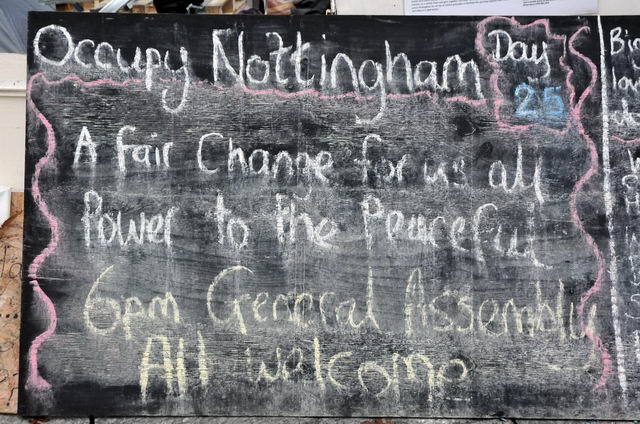 Occupy Nottingham Day
25
A fair Change for us all
Power to the Peaceful
6pm General Assembly
All welcome
Big